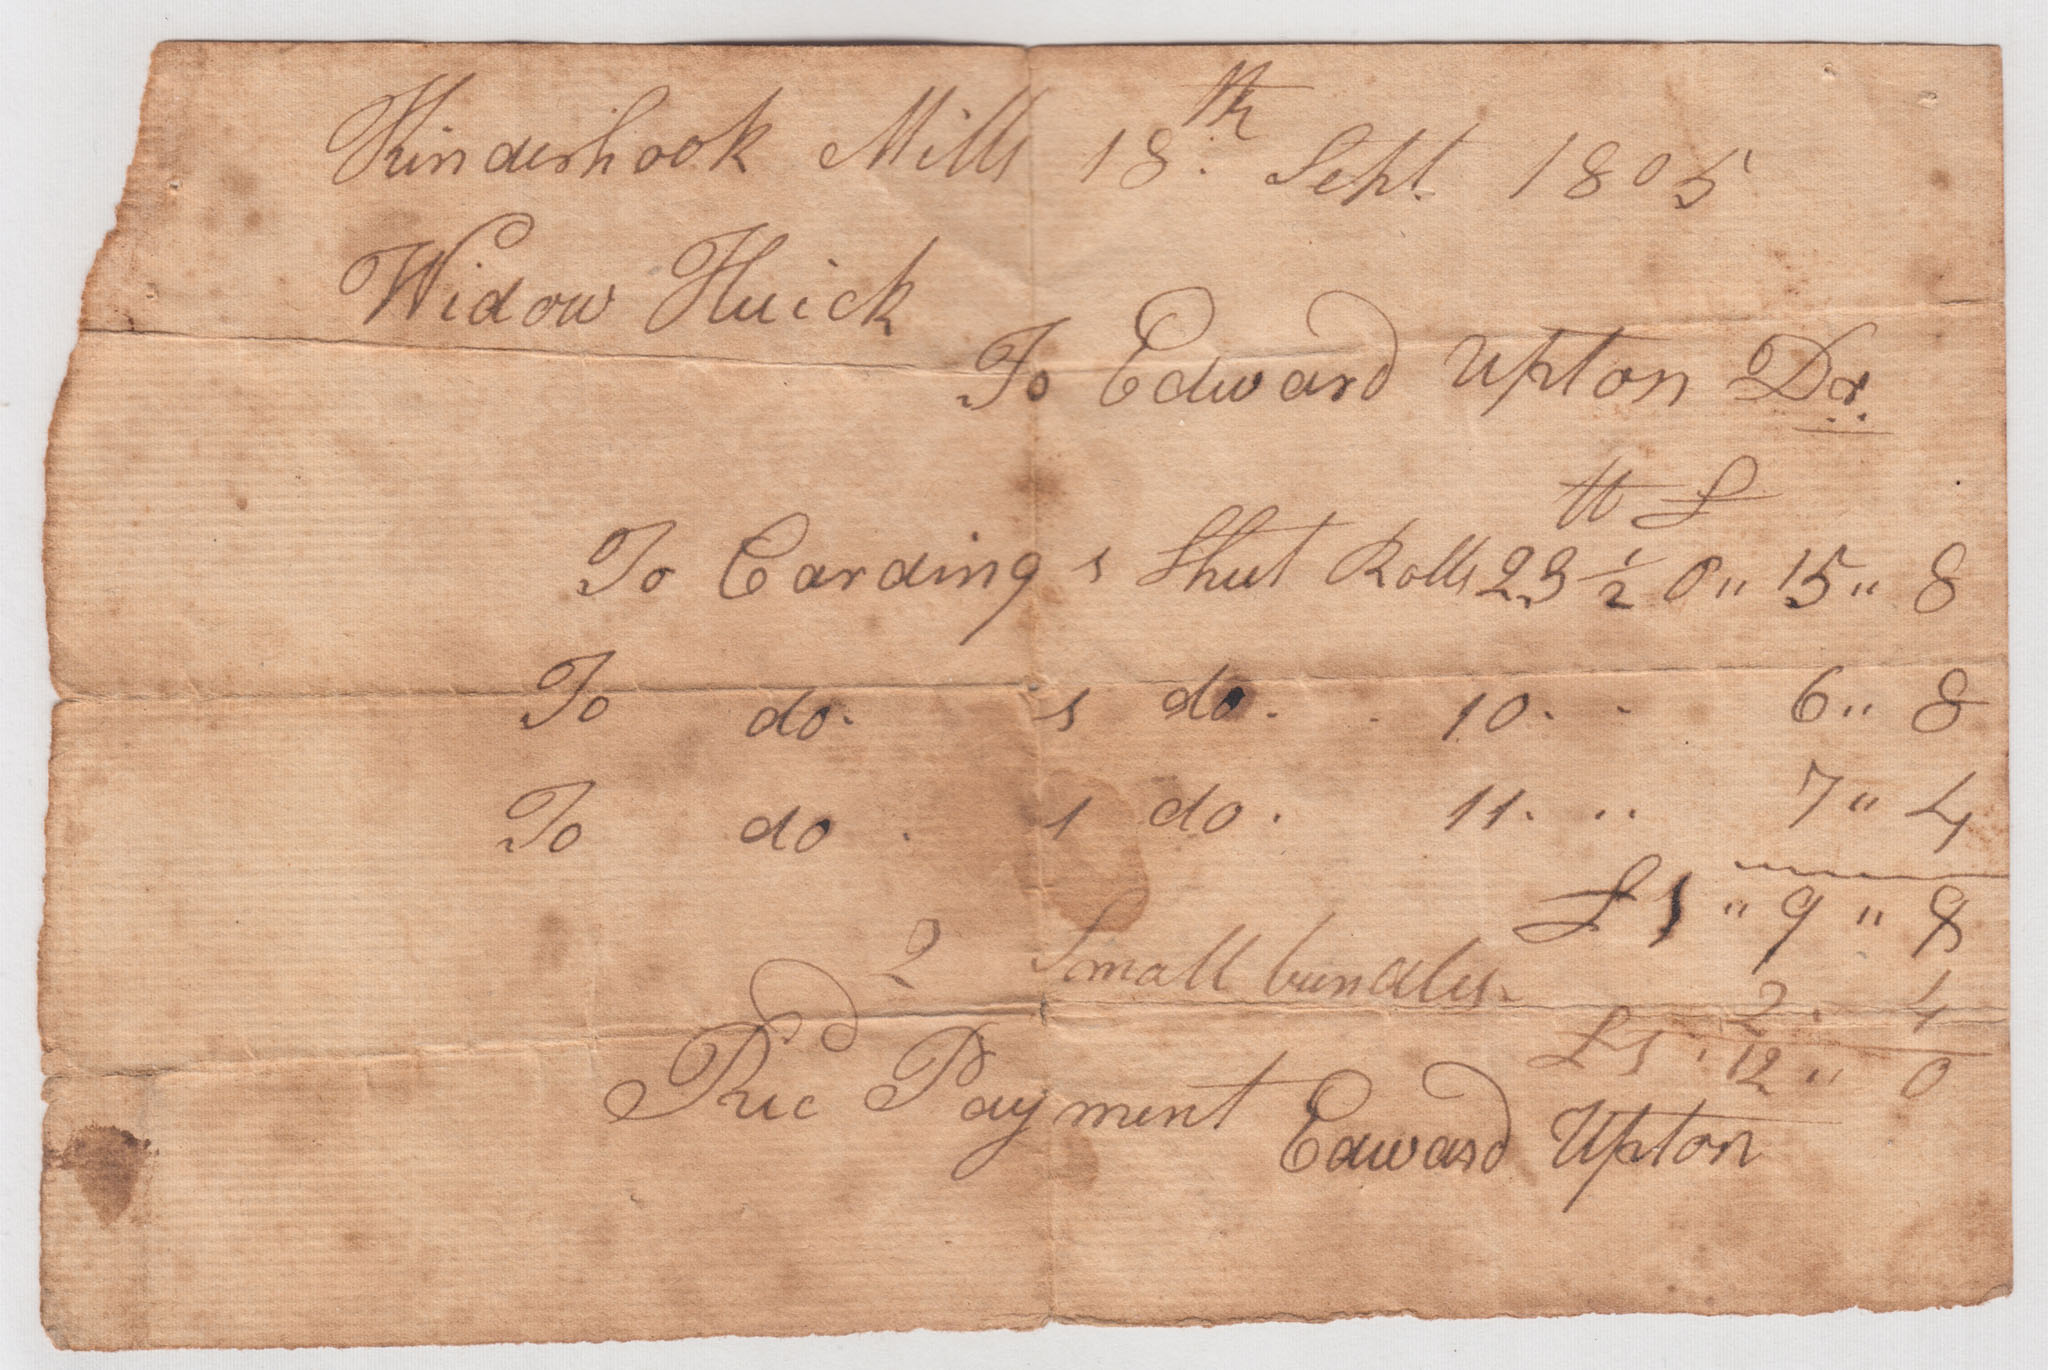 Kinderhook Mills 18.th Sept. 1805
Widow Huick
To Edward Upton Dr.
lb £
To Carding 1 Shut Rolls 23 1/2 0 " 15 " 8
To do. 1 do. . 10. . 6 " 8
To do . 1 do . 11. .. 7 " 4
£ 1 " 9 " 8
2 Small bundles 2 . 4
£ 1 . 12 " 0
Recd Payment
Edward Upton